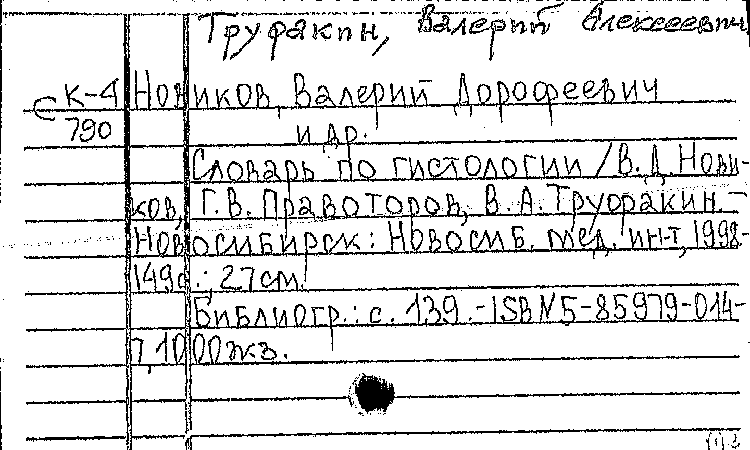 Труфакин, Валерий Алексеевич
К-4 Новиков, Валерий Дорофеевич
790 и др.
Словарь по гистологии / В. Д. Нови-
ков, Г. В. Правоторов, В. А. Труфакин. –
Новосибирск: Новосиб. мед. ин-т, 1998.-
149с.; 27см.
Библиогр.: с. 139.-ISBN5-85979-014-
7, 1000жз.